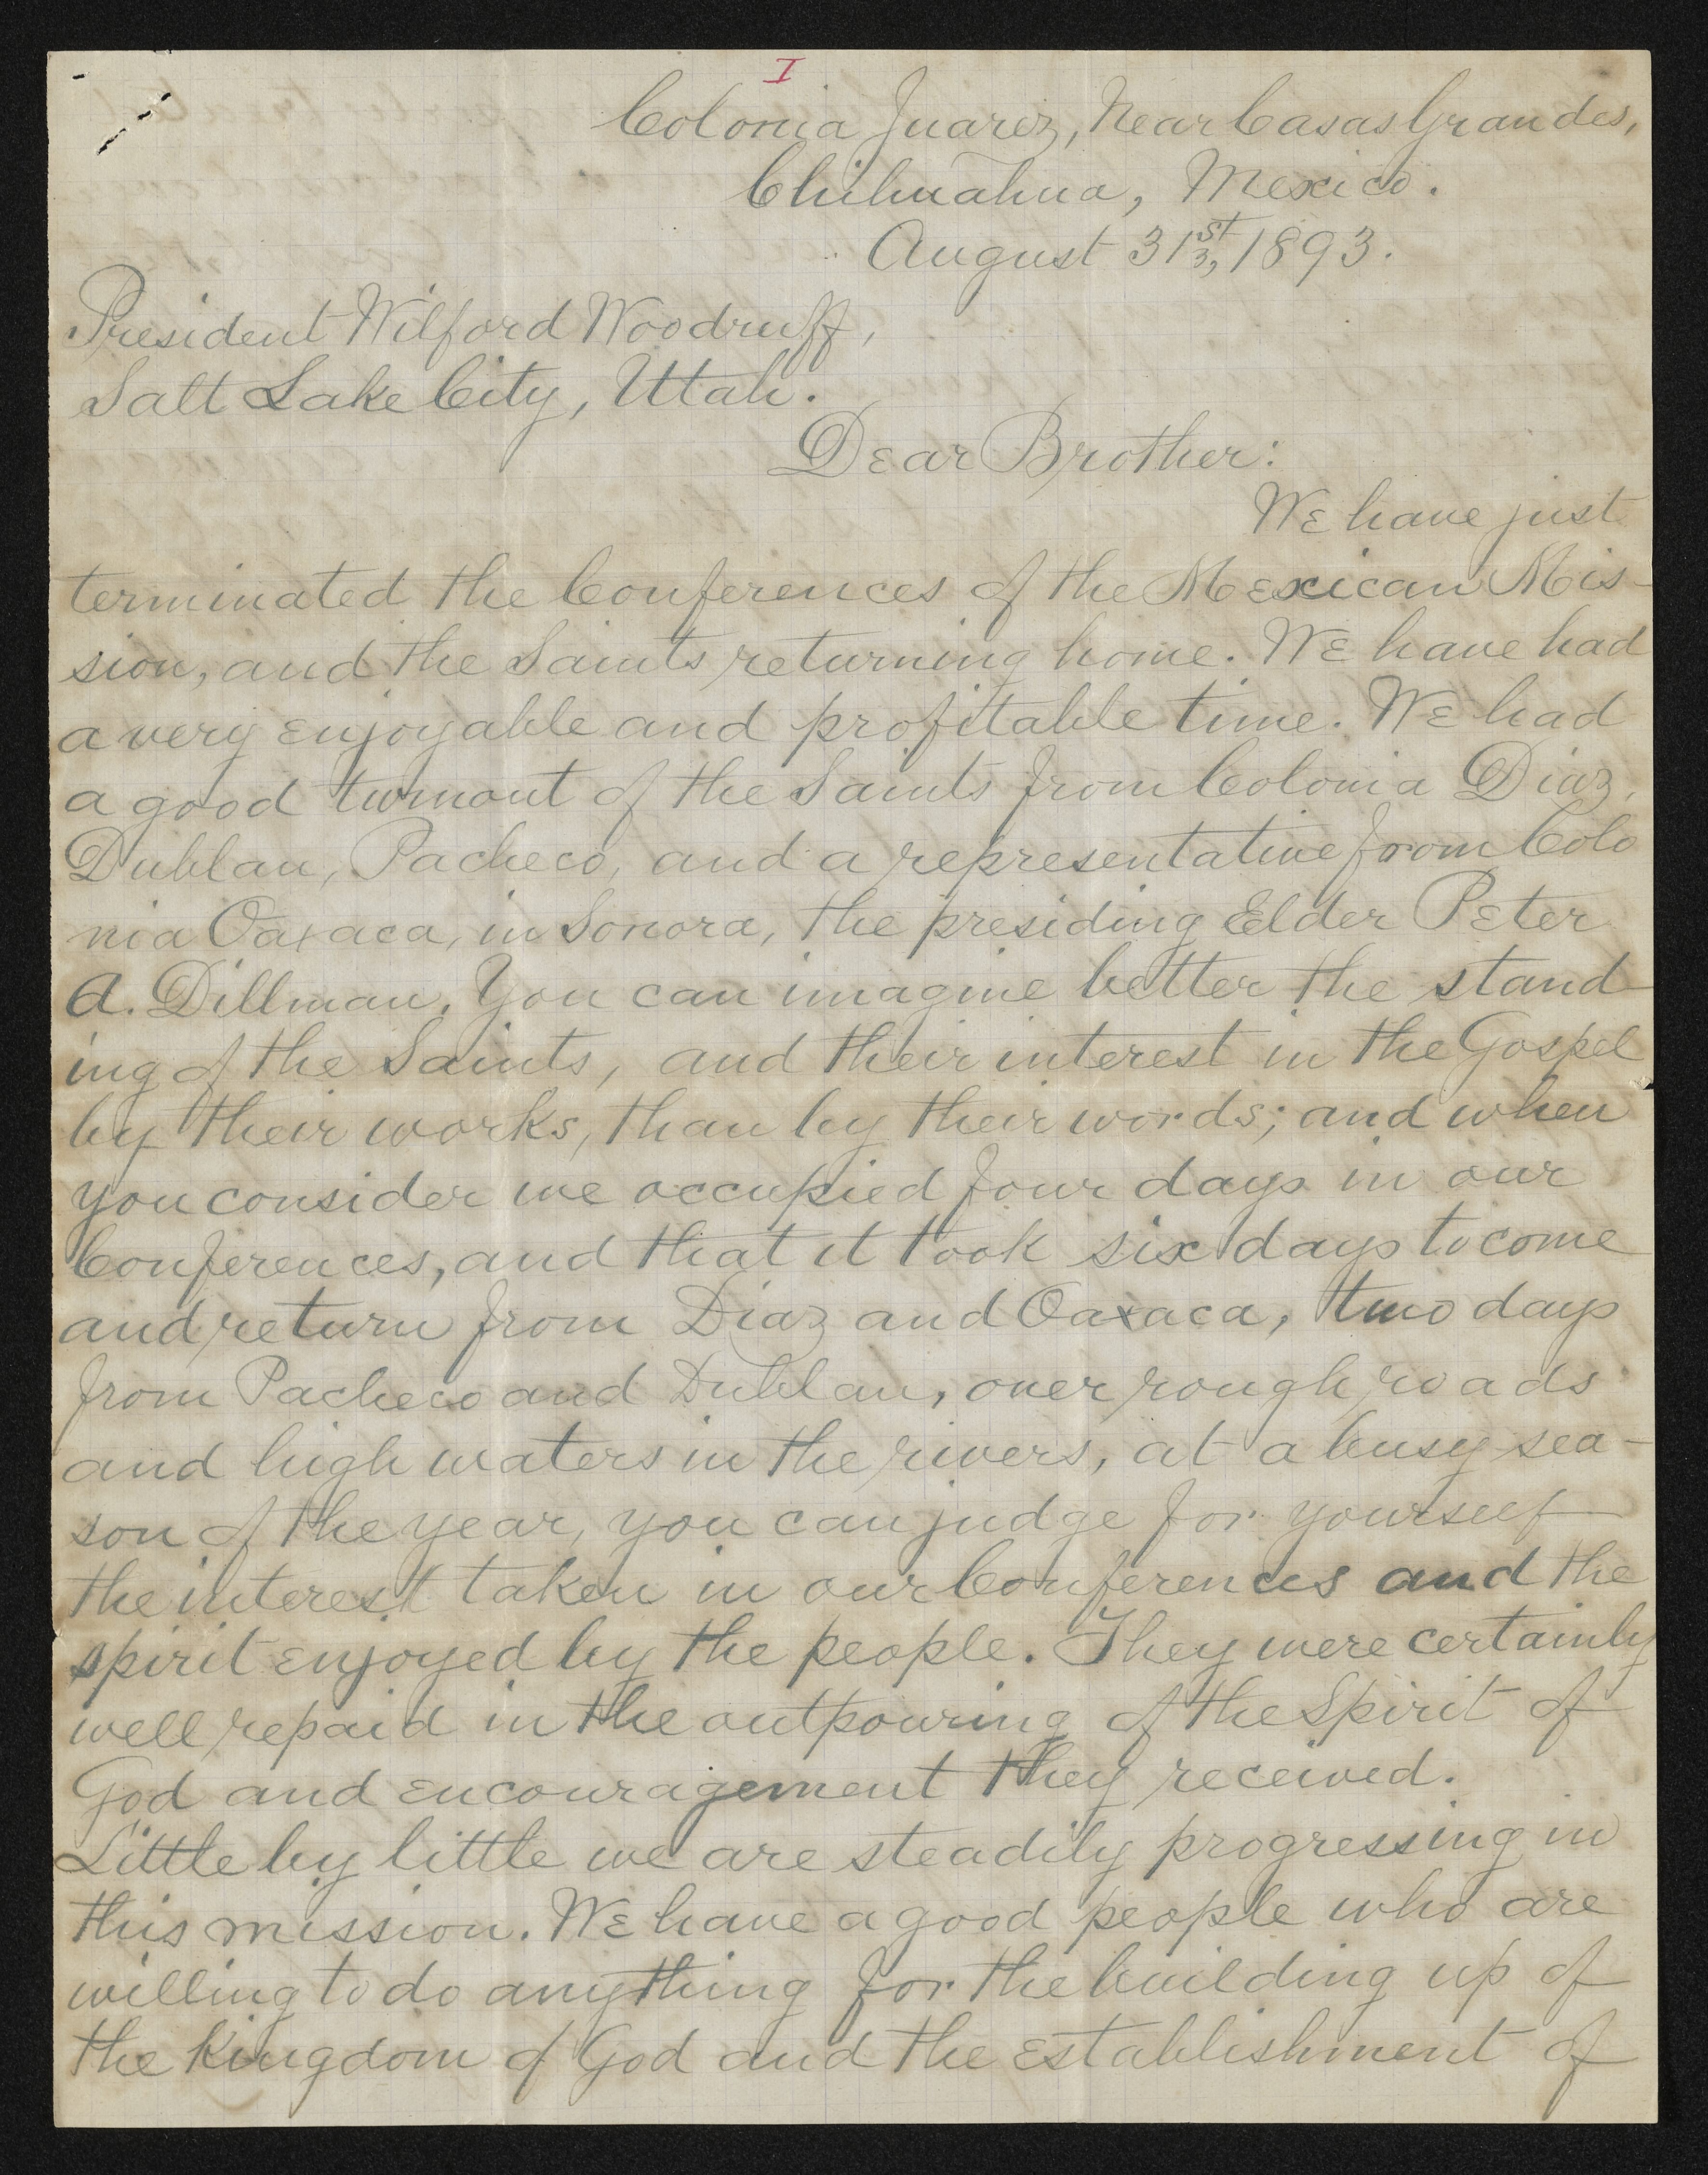 I
Colonia Juarez, Near Casas Grandes,
Chihuahua, Mexico.
August 31st, 1893.
President Wilford Woodruff,
Salt Lake City, Utah.
Dear Brother:
We have just
terminated the Conferences of the Mexican Mis-
sion, and the Saints returning home. We have had
a very enjoyable and profitable time. We had
a good turnout of the Saints from Colonia Diaz,
Dublan, Pacheco, and a representative from Colo
nia Oaxaca, in Sonora, the presiding Elder Peter
A. Dillman. You can imagine better the stand-
ing of the Saints, and their interest in the Gospel
by their works, than by their words; and when
you consider we occupied four days in our
Conferences, and that it took six days to come
and return from Diaz and Oaxaca, two days
from Pacheco and Dublan, over rough roads
and high waters in the rivers, at a busy sea-
son of the year, you can judge for yourself
the interest taken in our Conferences and the
spirit enjoyed by the people. They were certainly
well repaid in the outpouring of the Spirit of
God and encouragement they received.
Little by little we are steadily progressing in
this mission. We have a good people who are
willing to do anything for the building up of
the Kingdom of God and the establishment of